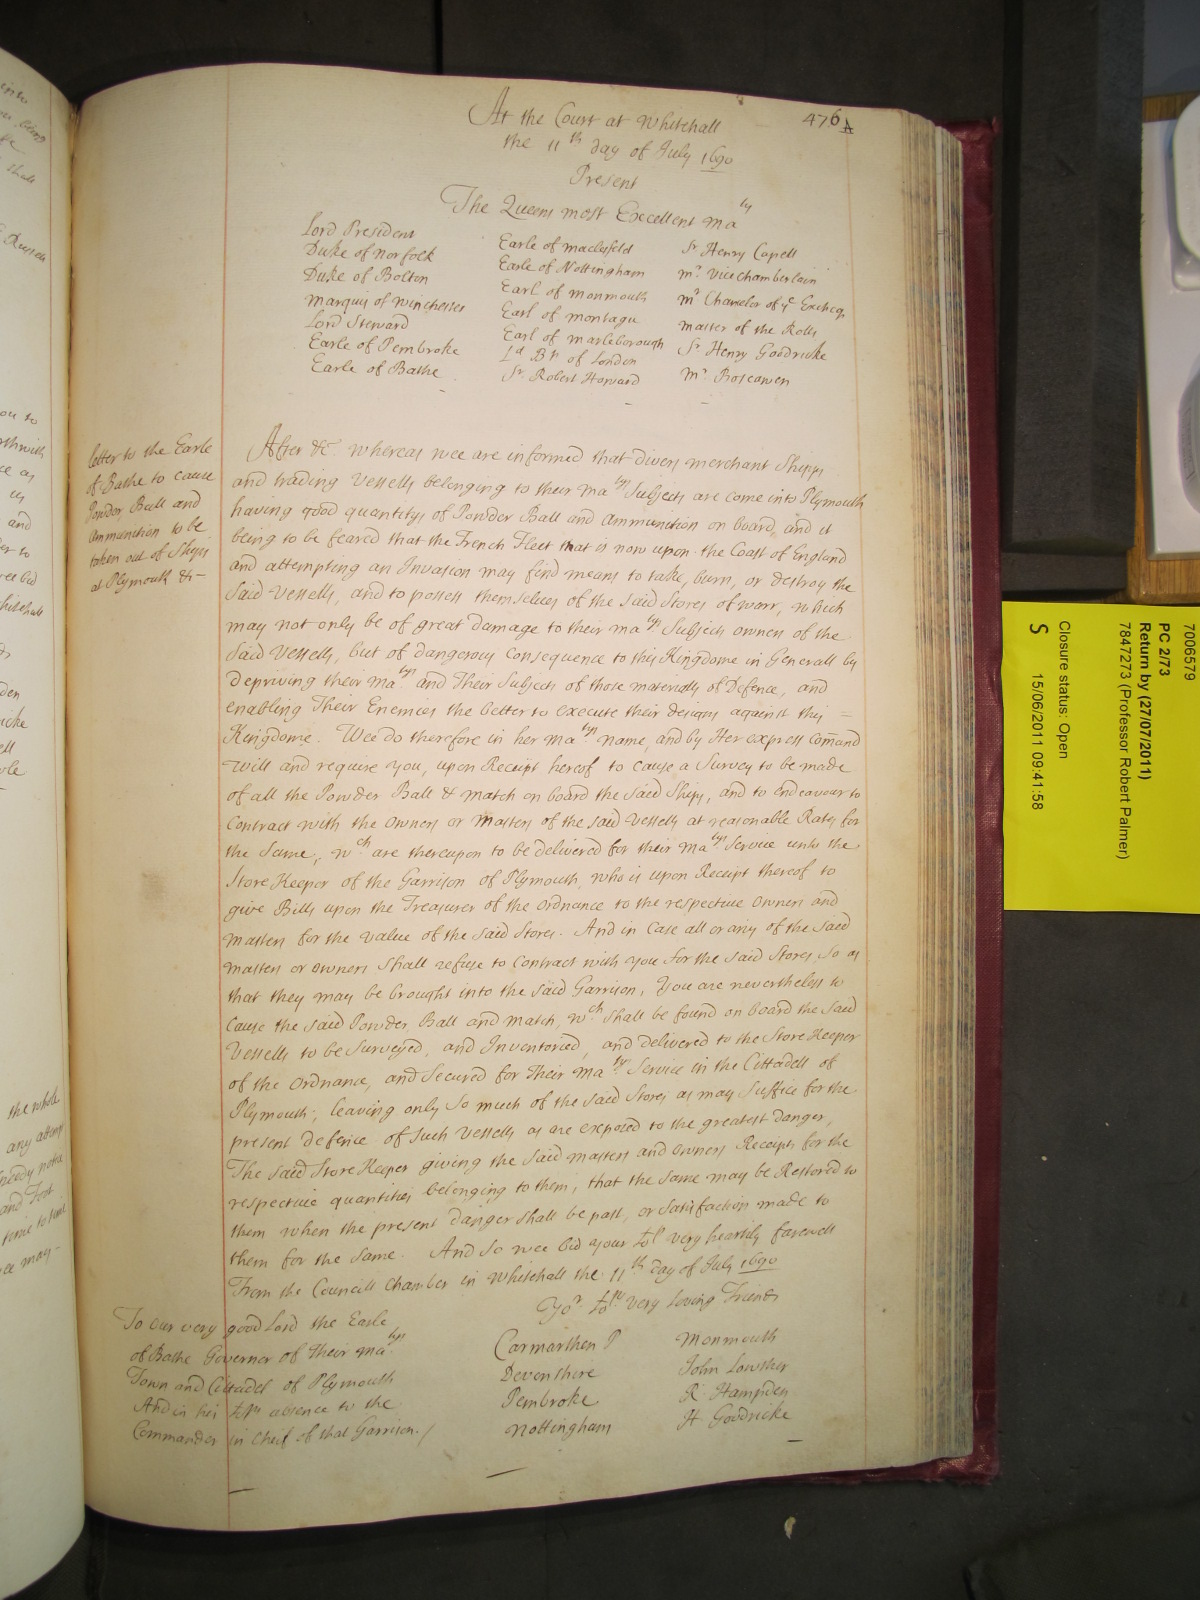 476A
At the Court at Whitehall
the 11th day of July 1690
Present
The Queens most Excellent Maty
Lord President
Duke of Norfolk
Duke of Bolton
Marquis of Winchester
Lord Steward
Earle of Pembroke
Earle of Bathe
Earle of Macclesfeld
Earle of Nottingham
Earl of Monmouth
Earl of Montagu
Earl of Marleborough
Ld Bp of London
Sr Robert Howard
Sr Henry Capell
Mr Vicechamberlain
Mr Chancelor of ye Excheqr
Master of the Rolls
Sr Henry Goodricke
Mr Boscawen
letter to the Earle
of Bathe to cause
Powder Ball and
Ammunition to be
taken out of Shipps
at Plymouth &c
After &c whereas wee are informed that divers merchant Shipps
and trading Vessells belonging to their Matys Subjects are come into Plymouth
having good quantitys of Powder Ball and Ammunition on board, and it
being to be feared that the French Fleet that is now upon the Coast of England
and attempting an Invasion may find means to take, burn, or destroy the
Said Vessells, and to possess themselves of the said Stores of warr, which
may not only be of great damage to their Matys Subjects owners of the
Said Vessells, but of dangerous Consequence to this Kingdome in Generall by
depriving their Matys and Their Subjects of those materialls of Defence, and
enabling Their Enemies the better to execute their designs against this =
Kingdome. Wee do therefore in her Matys name, and by Her express Comand
will and require you, upon Receipt hereof to cause a Survey to be made
of all the Powder Ball & Match on board the said Shipps, and to endeavour to
Contract with the Owners or Masters of the said Vessells at reasonable Rates for
the Same, wch are thereupon to be delivered for their Matys Service unto the
Store Keeper of the Garrison of Plymouth, who is upon Receipt thereof to
give Bills upon the Treasurer of the Ordnance to the respective Owners and
Masters for the value of the said Stores. And in Case all or any of the said
Masters or Owners shall refuse to Contract with you for the said Stores, So as
that they may be brought into the said Garrison, You are nevertheless to
Cause the said Powder, Ball and Match, wch shall be found on board the said
Vessells to be Surveyed, and Inventoried, and delivered to the Store Keeper
of the Ordnance, and Secured for Their Matys Service in the Cittadell of
Plymouth, leaving only so much of the said Stores as may Suffice for the
present defence of such Vessells as are exposed to the greatest danger,
The said Store Keeper giving the said Masters and Owners Receipts for the
respective quantities belonging to them, that the same may be Restored to
them when the present danger shall be past, or satisfaction made to
them for the same. And so wee bid your Lop very heartily farewell
From the Councill Chamber in Whitehall the 11th day of July 1690
Yor Lops very Loving Friends
To our very good Lord the Earle
of Bathe Governor of Their Matys
Town and Cittadel of Plymouth
And in his Lops absence to the
Commander in Cheif of that Garrison./
Carmarthen P
Devonshire
Pembroke
Nottingham
Monmouth
John Lowther
R Hampden
H Goodricke
7006579
PC 2/73
Return by (27/07/2011)
7847273 (Professor Robert Palmer)
Closure status: Open
S 15/06/2011 09:41:58